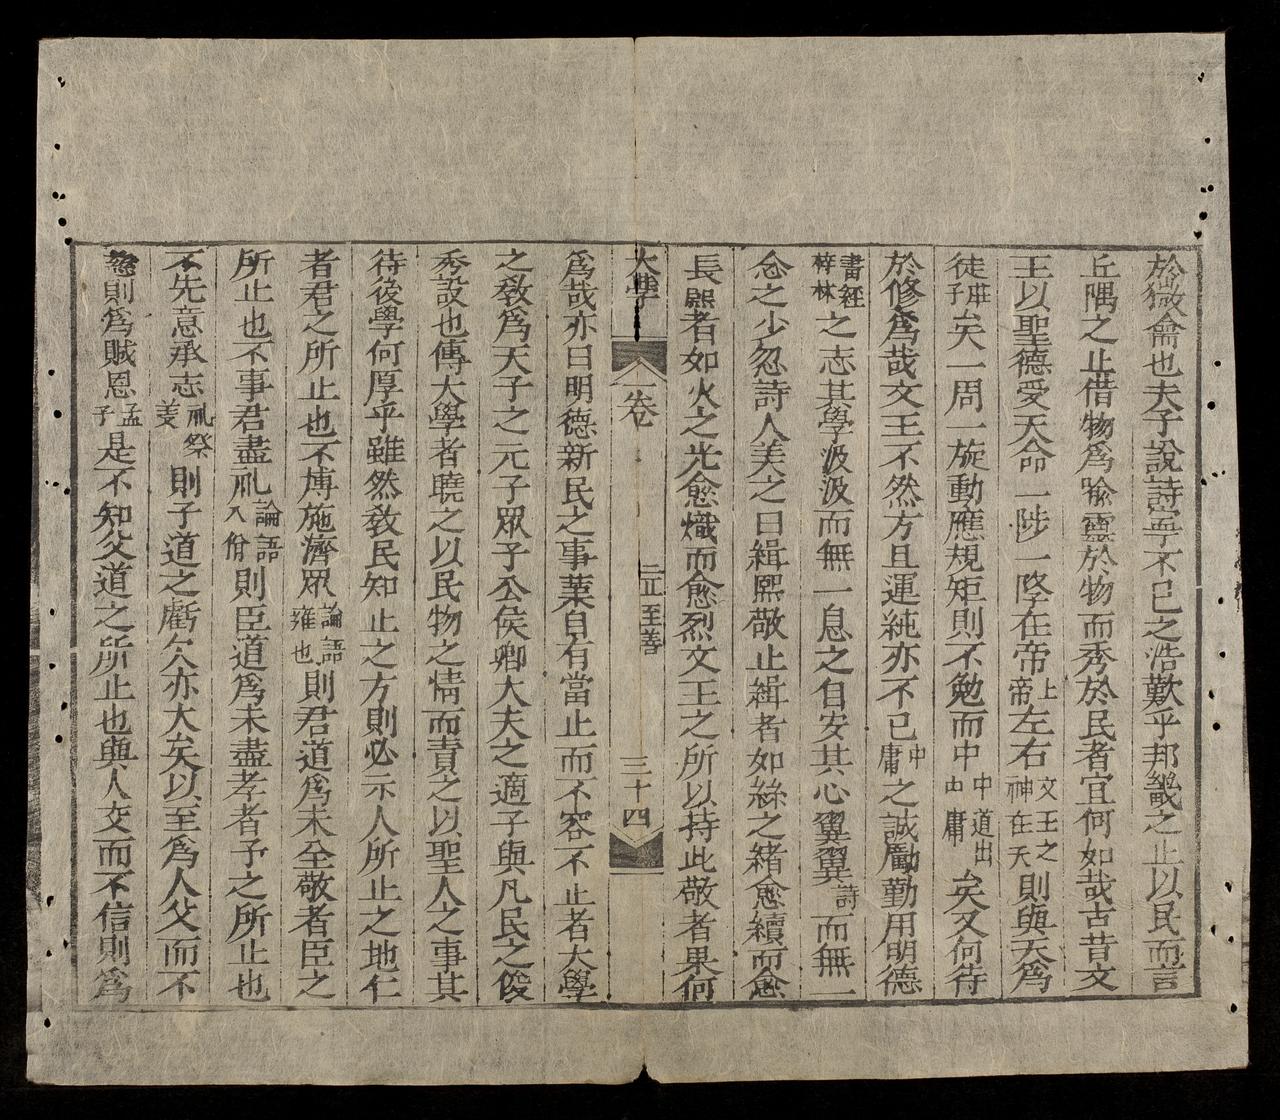 於微龠也夫子說詩寧不已之浩歎乎邦畿之止以民而言
丘隅之止借物爲喩靈於物而秀於民者宜何如哉古昔文
王以聖德受天命一陟一降在帝帝上左右文王之神在天則與天爲
徒莊子矣一周一旋動應規矩則不勉而中中道出中庸矣又何待
於修爲哉文王不然方且運純亦不已中庸之誠勵勤用明德
書經梓林之志其學汲汲而無一息之自安其心翼翼詩而無一
念之少忽詩人美之曰緝熙敬止緝者如絲之緖愈續而愈
長熙者如火之光愈熾而愈烈文王之所以持此敬者果何
大學 一卷 止至善 三十四
爲哉亦曰明德新民之事業自有當止而不容不止者大學
之敎爲天子之元子眾子公侯卿大夫之適子與凡民之俊
秀設也傳大學者曉之以民物之情而責之以聖人之事其
待後學何厚乎雖然敎民知止之方則必示人所止之地仁
者君之所止也不博施濟眾論語雍也則君道爲未全敬者臣之
所止也不事君盡礼論語八佾則臣道爲未盡孝者子之所止也
不先意承志礼祭義則子道之虧欠亦大矣以至爲人父而不
慈則爲賊恩孟子是不知父道之所止也與人交而不信則爲